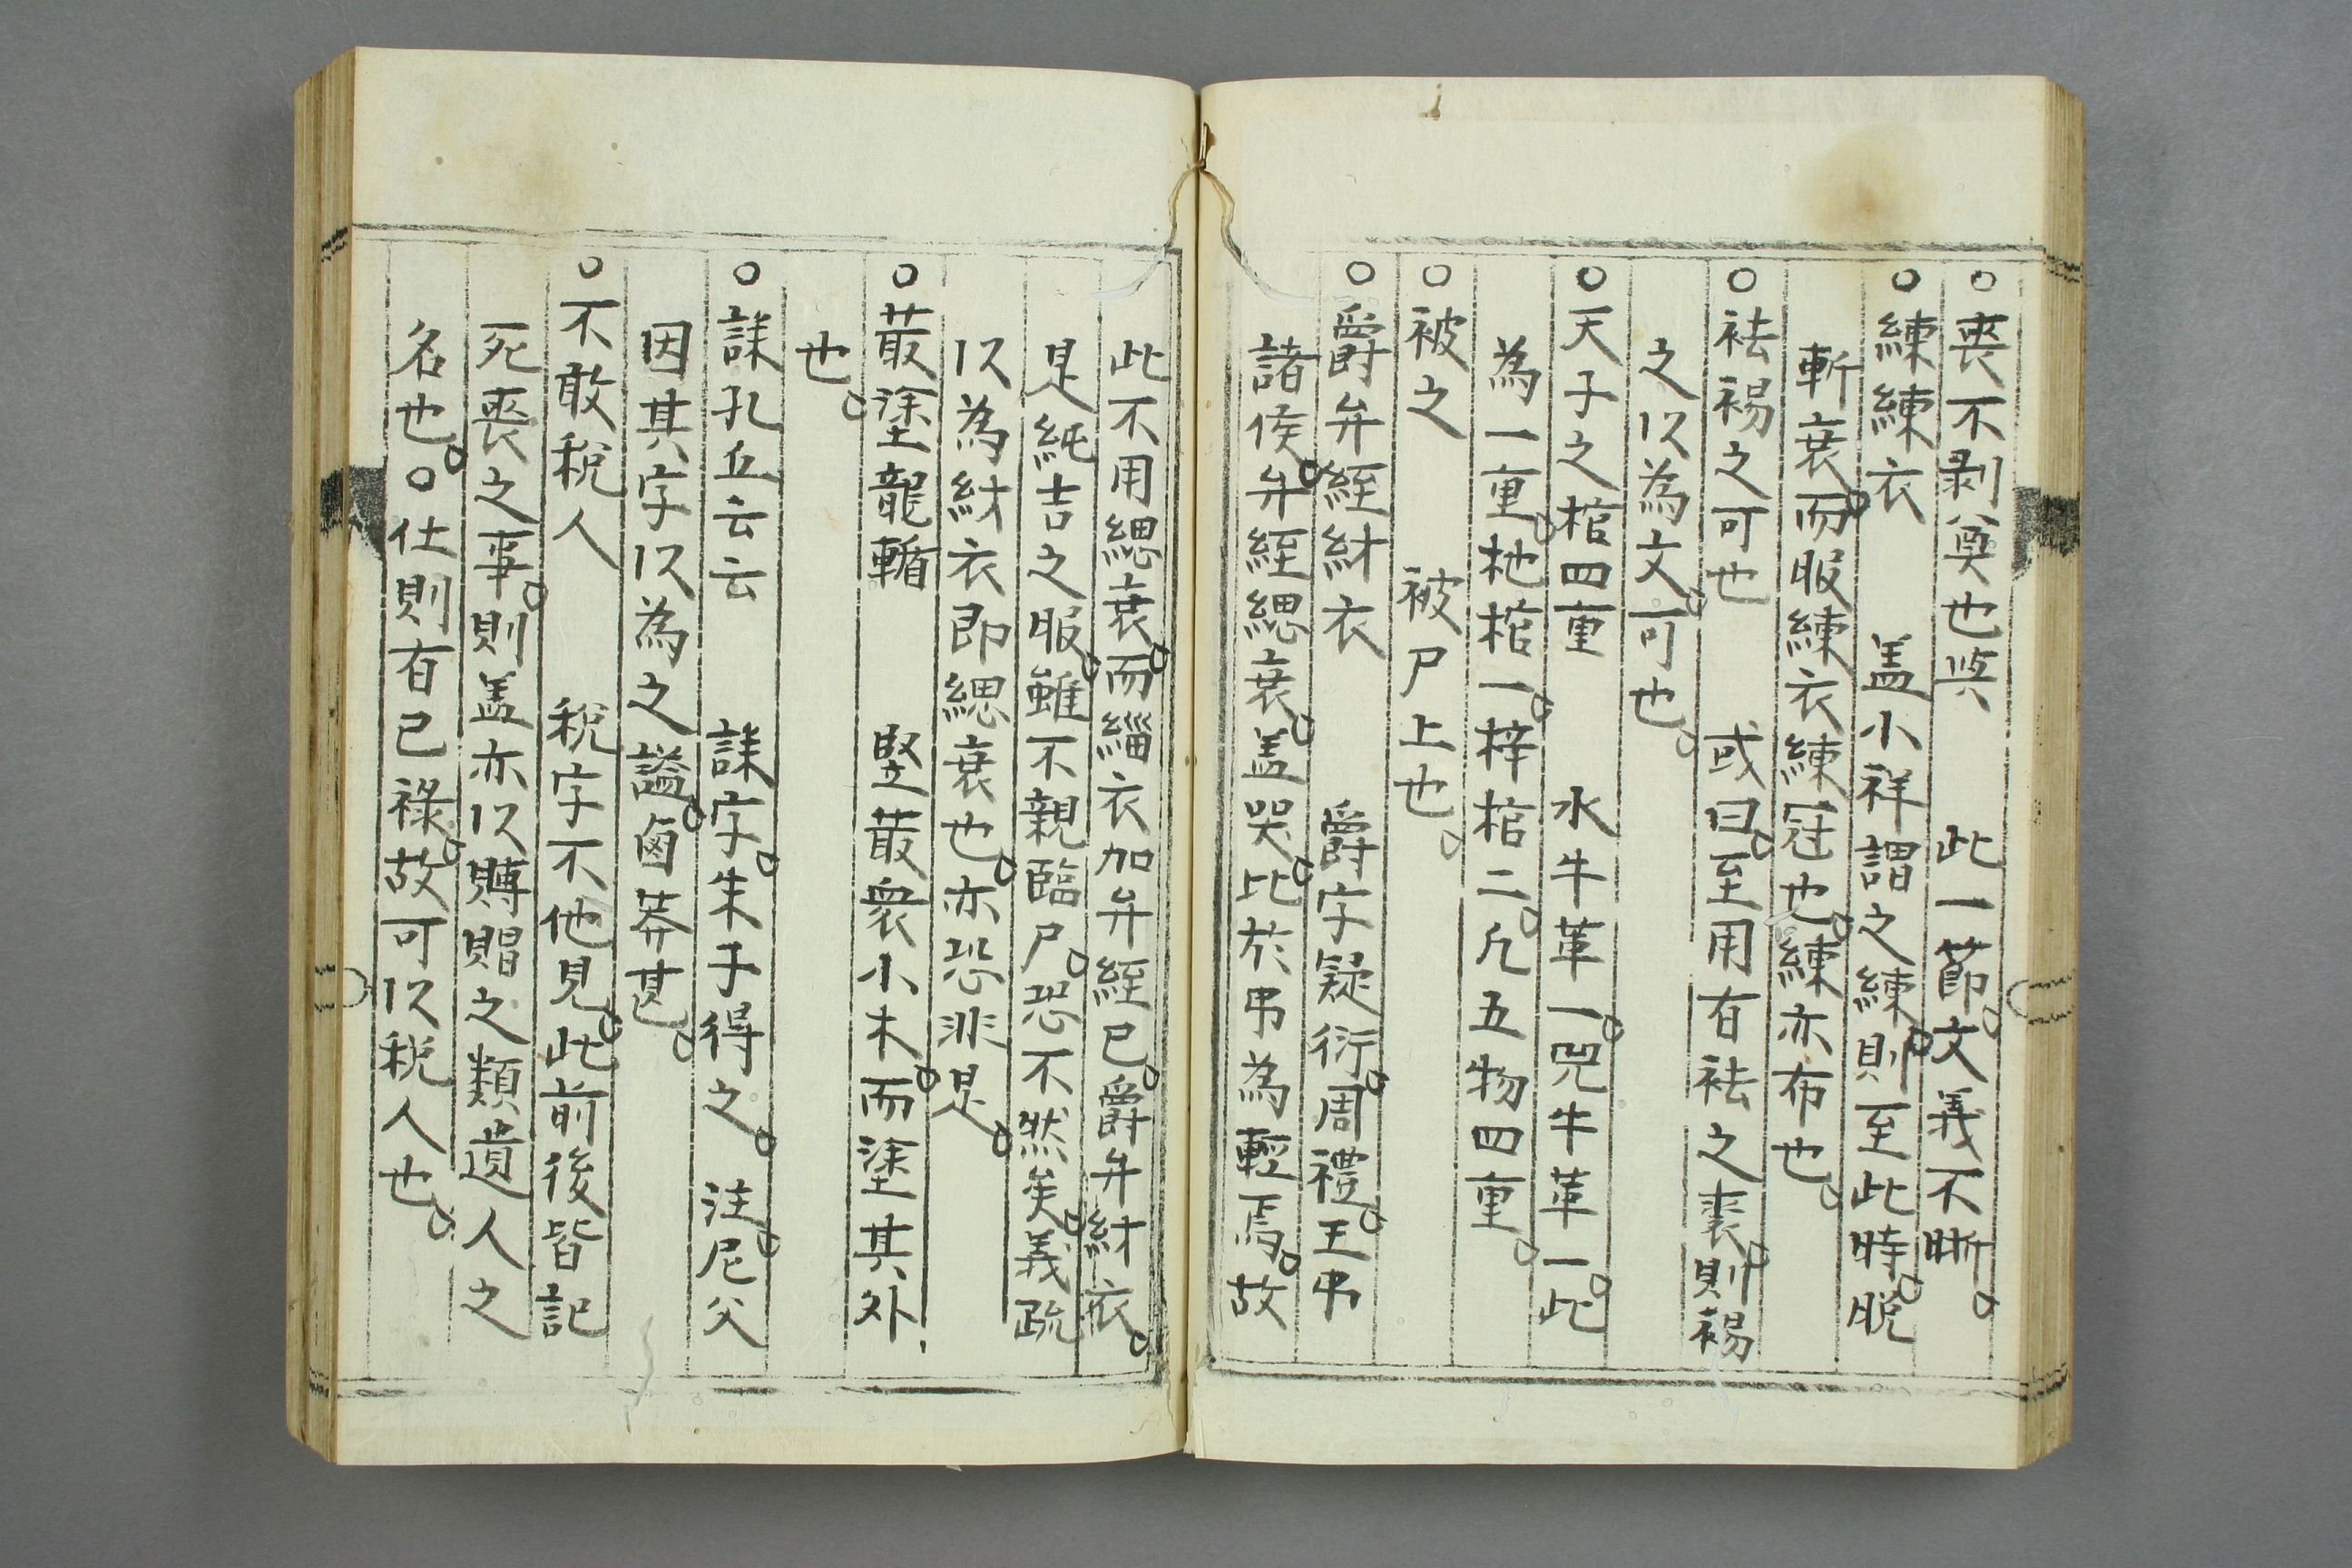 ○喪不剥奠也與　此一節。文義不晰。
○練練衣　盖小祥謂之練。則至此時。脫
斬衰。而服練衣練冠也。練亦布也。
○袪裼之可也　或曰。至用有袪之裘。則裼
之以為文。可也。
○天子之棺四重　水牛革一。兕牛革一。此
為一重。杝棺一。梓棺二。凡五物四重。
○被之　被尸上也。
○爵弁絰紂衣　爵字疑衍。周禮。王弔
諸侯。弁絰緦衰。盖哭。比於弔為輕焉。故
此不用緦衰。而緇衣加弁絰已。爵弁紂衣。
是純吉之服。雖不親臨尸。恐不然矣。義疏
以為紂衣即緦衰也。亦恐非是。
○菆塗龍輴　堅菆衆小木。而塗其外
也。
○誄孔丘云云　誄字。朱子得之。注。尼父
因其字以為之謚。鹵莽甚。
○不敢稅人　稅字不他見。此前後皆記
死喪之事。則盖亦以賻賵之類遺人之
名也。○仕則有已祿。故可以稅人也。